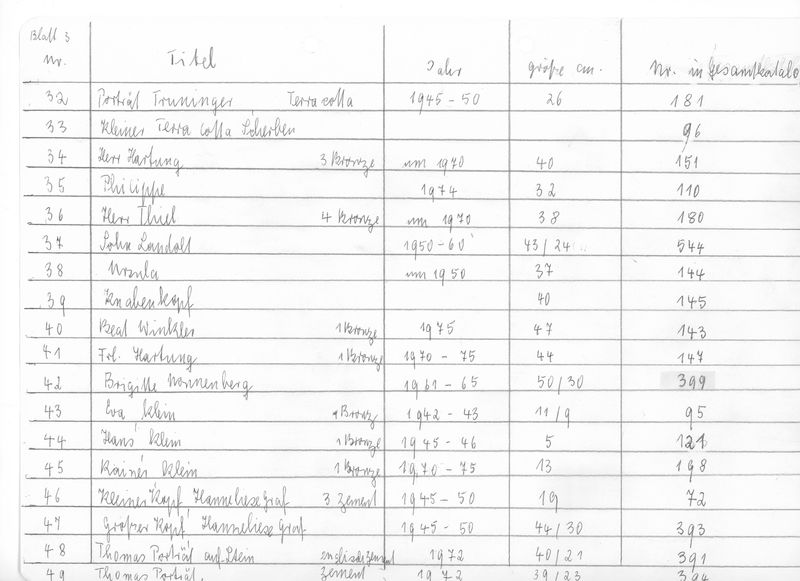 Blatt 3
Nr. Titel Jahr größe cm. Nr. in Gesamtkatalo
32 Porträt Truninger Terracotta 1945-50 26 181
33 Kleiner Terra cotta Scherben 96
34 Herr Hartung 3 Bronze um 1970 40 151
35 Philippe 1974 32 110
36 Herr Thiel 4 Bronze um 1970 38 180
37 Sohn Landolt 1950-60 43/24 544
38 Ursula um 1950 37 144
39 Knabenkopf 40 145
40 Beat Winkler 1 Bronze 1975 47 143
41 Frl. Hartung 1 Bronze 1970-75 44 147
42 Brigitte Nonnenberg 1961-65 50/30 399
43 Eva Klein 1 Bronz 1942-43 11/9 95
44 Hans Klein 1 Bronze 1945-46 5 121
45 Rainer Klein 1 Bronze 1970-75 13 198
46 Kleiner Kopf Hanneliese Graf 3 Zement 1945-50 19 72
47 Großer Kopf Hanneliese Graf 1945-50 44/30 393
48 Thomas Porträt auf Stein 1972 40/21 391
49 Thomas Porträt. Zement 1972 39/23 394